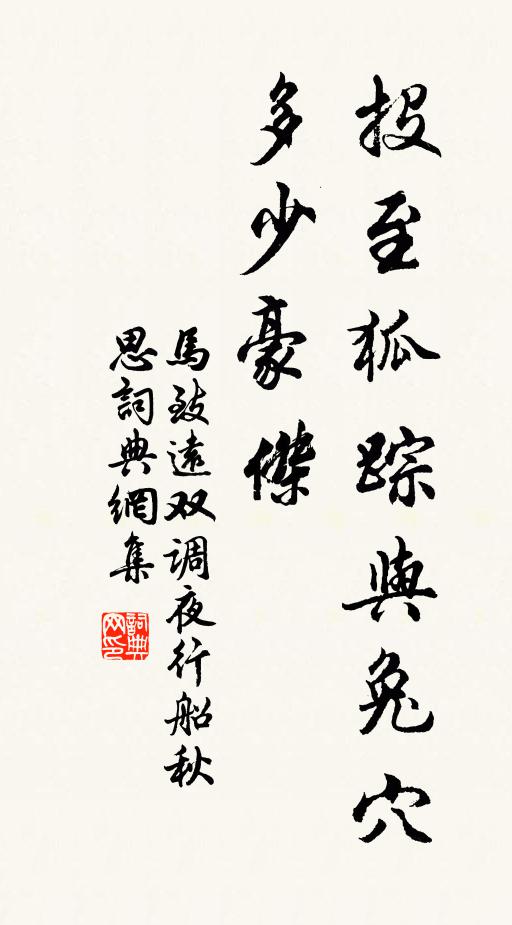 投至狐踪與兔穴
多少豪傑
馬致遠双调夜行船秋
思詞典網集
詞典
网印